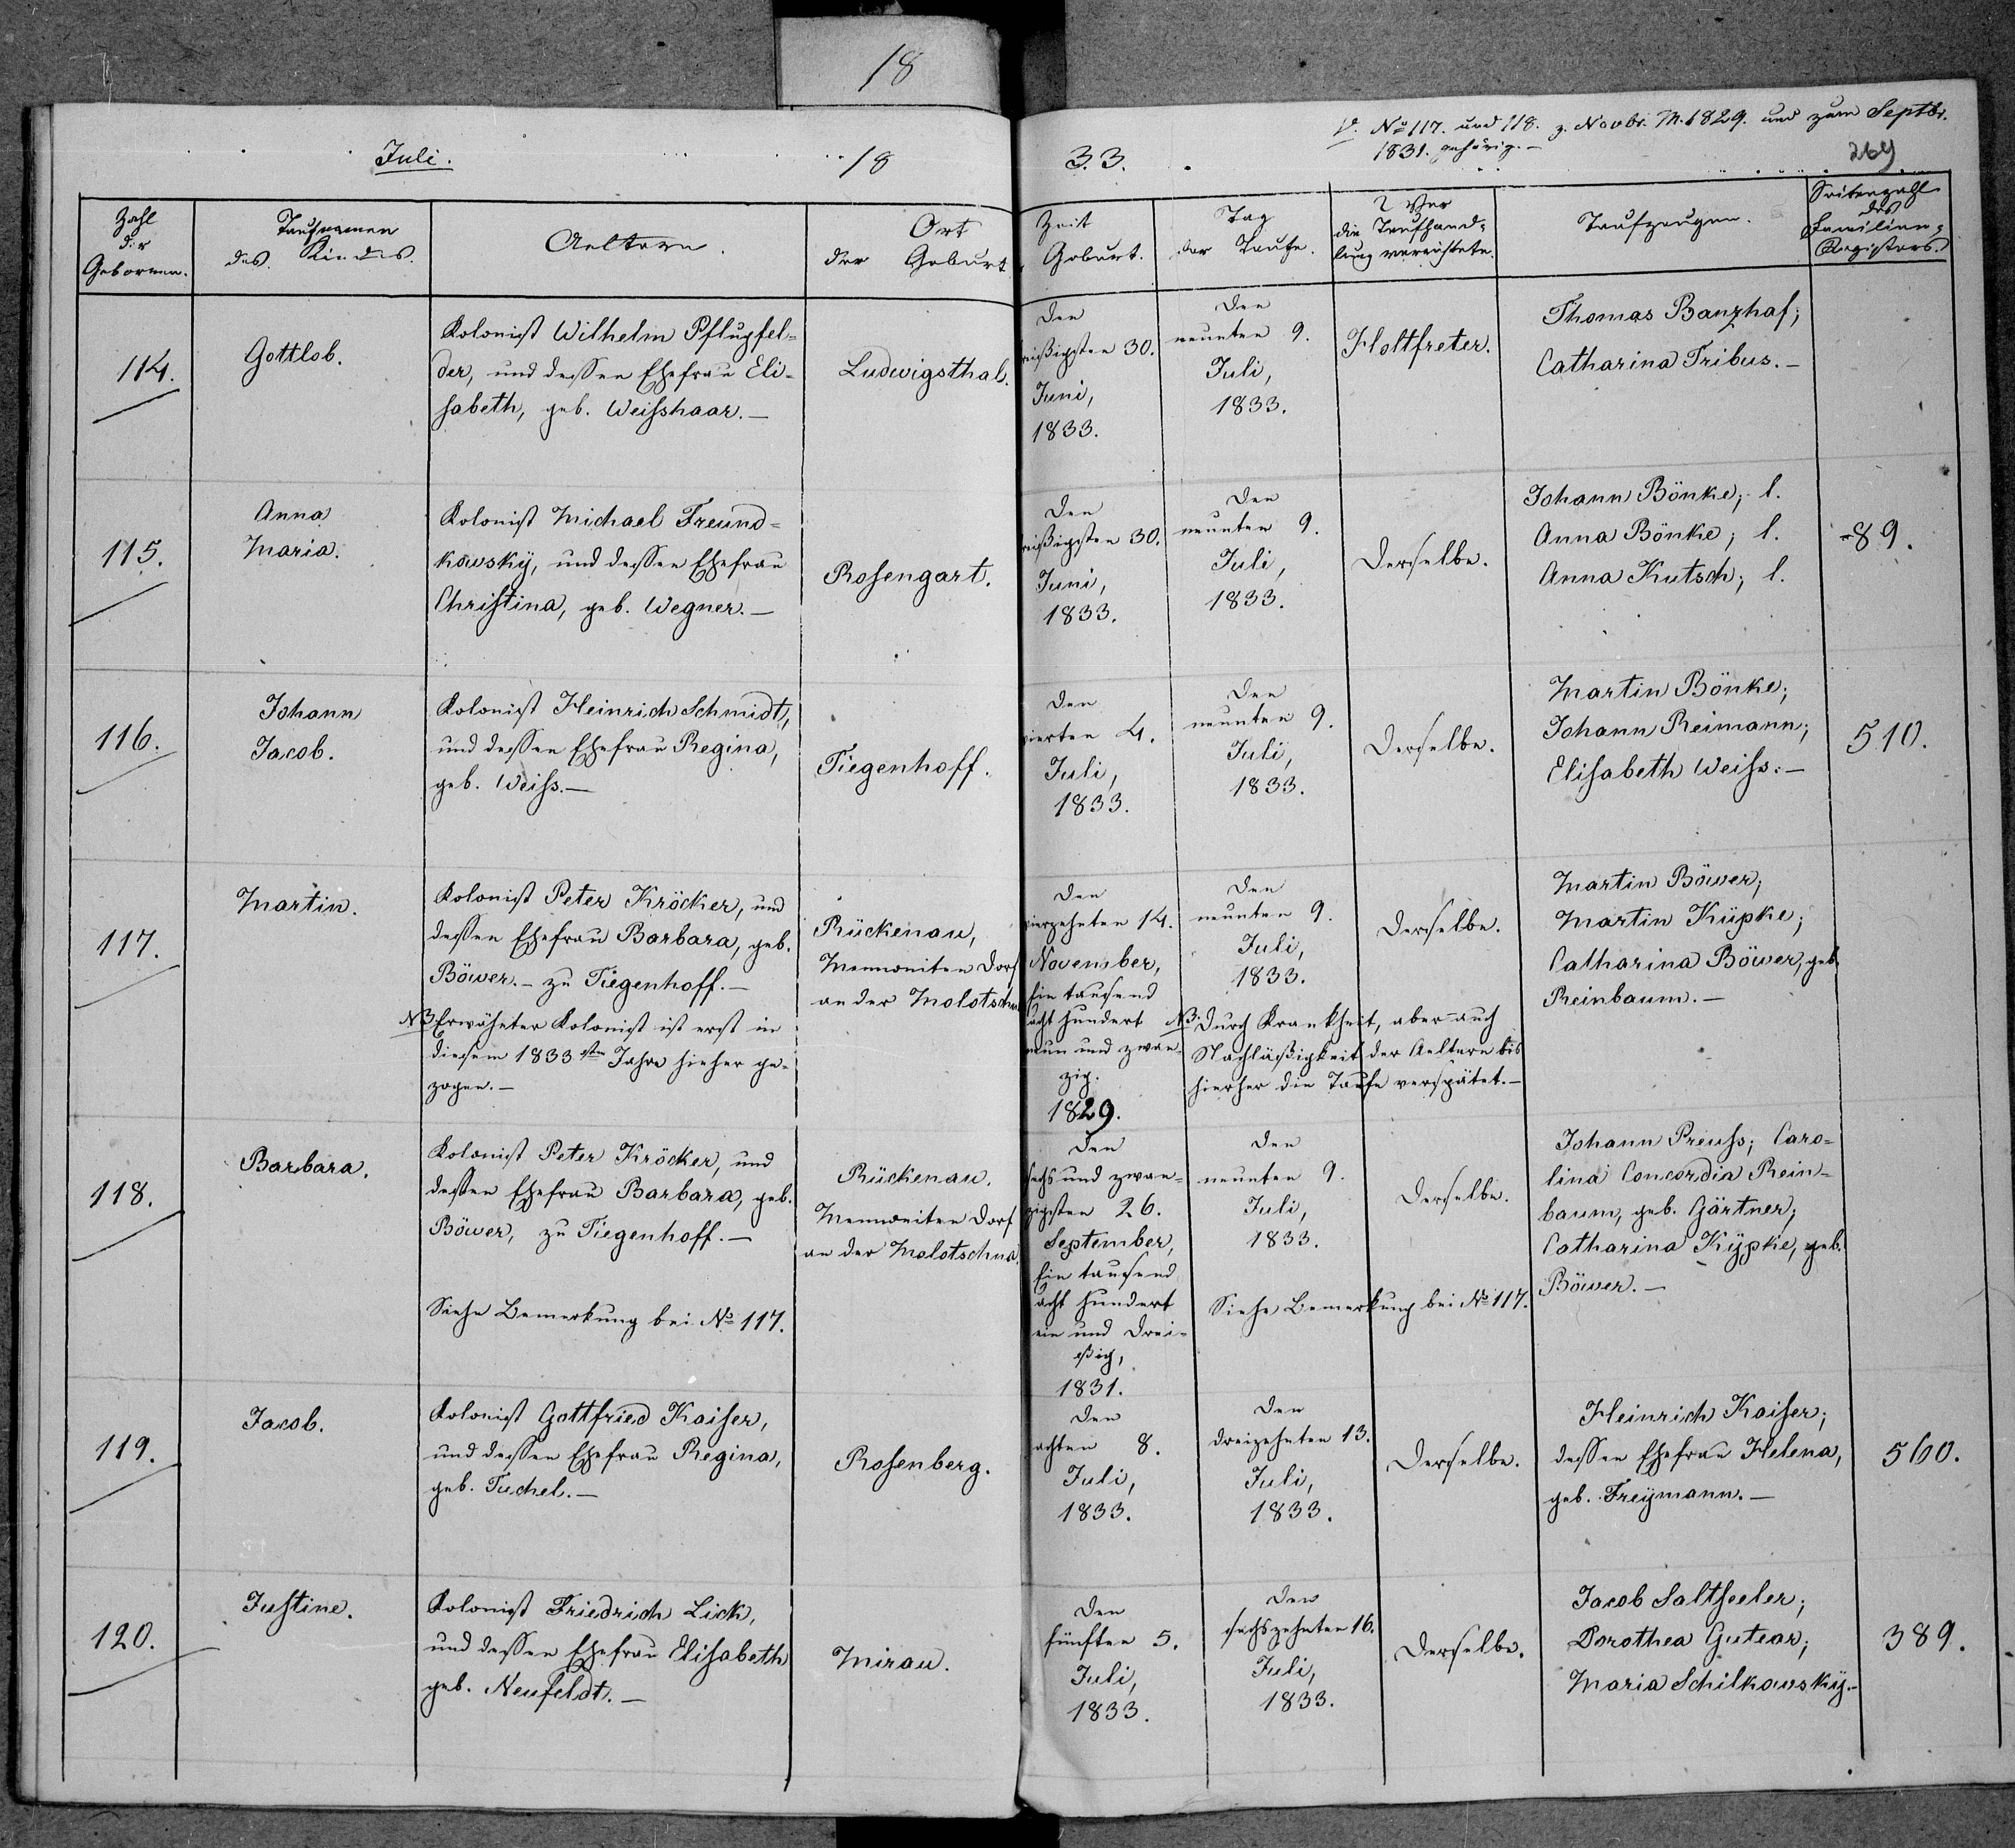 18
V. No 117. und 118. z. Novbr. M. 1829. und zum Septbr.
1831. gehörig. —
Juli.
18
33.
269
Zahl
der
Gebornen.
Taufnamen
des Kindes.
Aeltern
Ort
der Geburt
Zeit
Geburt.
Tag
der Taufe.
Wer
die Taufhand-
lung verrichtete.
Taufzeugen.
Seitenzahl
des
Familien-
Registers.
114.
Gottlob.
Kolonist Wilhelm Pflugfel-
der, und dessen Ehefrau Eli-
sabeth, geb. Weisshaar. —
Ludwigsthal.
Den
reißigsten 30.
Juni,
1833.
Den
neunten 9.
Juli,
1833.
Holtfreter.
Thomas Banzhaf;
Catharina Tribus. —
115.
Anna
Maria.
Kolonist Michael Freund-
kowsky, und dessen Ehefrau
Christina, geb. Wegner. —
Rosengart.
Den
reißigsten 30.
Juni,
1833.
Den
neunten 9.
Juli,
1833.
Derselbe.
Johann Bönke; l.
Anna Bönke; l.
Anna Kutsch; l.
89.
116.
Johann
Jacob.
Kolonist Heinrich Schmidt,
und dessen Ehefrau Regina,
geb. Weiss. —
Tiegenhoff.
Den
vierten 4.
Juli,
1833.
Den
neunten 9.
Juli,
1833.
Derselbe.
Martin Bönke;
Johann Reimann;
Elisabeth Weiss. —
510.
117.
Martin.
Kolonist Peter Kröcker, und
dessen Ehefrau Barbara, geb.
Böwer. — zu Tiegenhoff. —
NB. Erwähnter Kolonist ist erst in
diesem 1833sten Jahre hieher ge-
zogen. —
Rückenau,
Mennoniten Dorf
an der Molotschna
Den
vierzehnten 14.
November,
Ein tausend
acht hundert
neun und zwan-
zig.
1829.
Den
neunten 9.
Juli,
1833.
NB. Durch Krankheit, aber auch
Nachläßigkeit der Aeltern bis
hierher die Taufe verspätet. —
Derselbe.
Martin Böwer;
Martin Küpke;
Catharina Böwer, geb.
Reinbaum. —
118.
Barbara.
Kolonist Peter Kröcker, und
dessen Ehefrau Barbara, geb.
Böwer, zu Tiegenhoff. —
Siehe Bemerkung bei No 117.
Rückenau.
Mennoniten Dorf
an der Molotschna.
Den
sechs und zwan-
zigsten 26.
September,
Ein tausend
acht hundert
ein und drei-
eßig,
1831.
Den
neunten 9.
Juli,
1833.
Siehe Bemerkung bei No 117.
Derselbe.
Johann Preuss; Caro-
lina Concordia Rein-
baum, geb. Gärtner;
Catharina Kypke, geb.
Böwer. —
119.
Jacob.
Kolonist Gottfried Kaiser,
und dessen Ehefrau Regina,
geb. Tuchel. —
Rosenberg.
Den
achten 8.
Juli,
1833.
Den
dreizehnten 13.
Juli,
1833.
Derselbe.
Heinrich Kaiser;
dessen Ehefrau Helena,
geb. Freymann. —
560.
120.
Justine.
Kolonist Friedrich Lick,
und dessen Ehefrau Elisabeth
geb. Neufeldt. —
Mirau.
Den
fünften 5.
Juli,
1833.
Den
sechszehnten 16.
Juli,
1833.
Derselbe.
Jacob Saltseeler;
Dorothea Gutear;
Maria Schilkowsky. —
389.